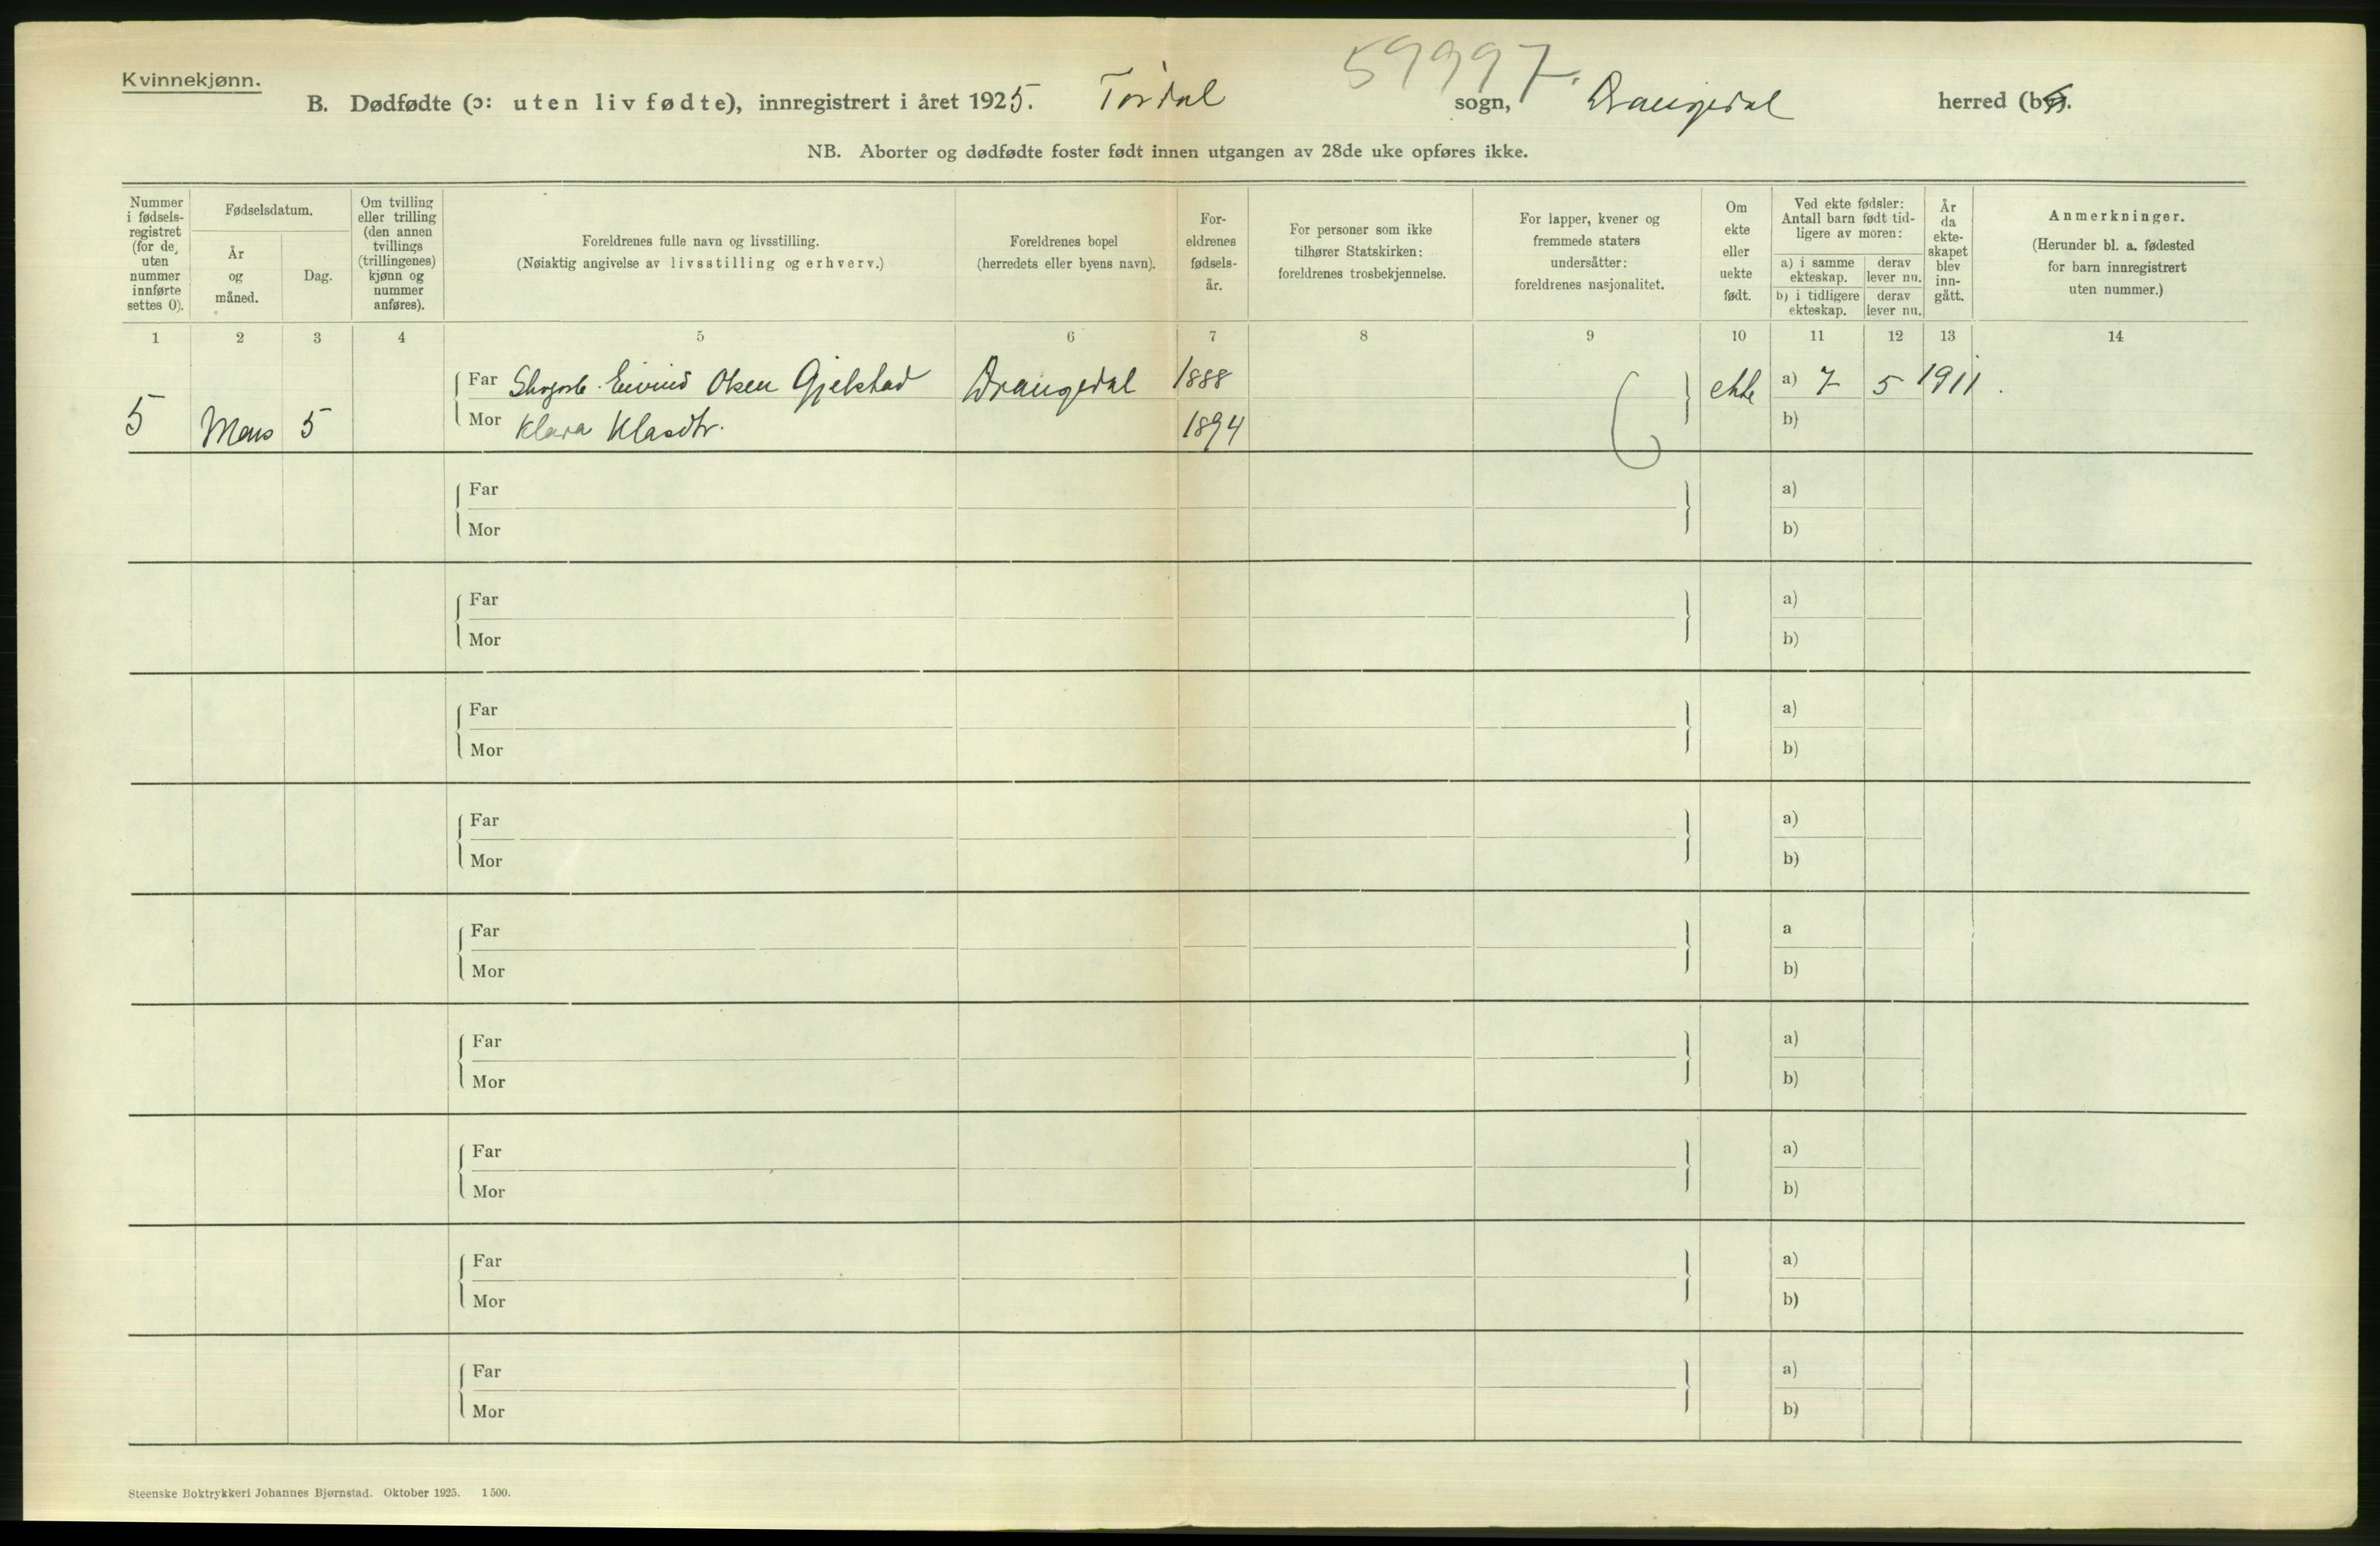 59997.
Kvinnekjønn.
B. Dødfødte (ɔ: uten liv fødte), innregistrert i året 1925. Tørdal sogn, Drangedal herred (by).
NB. Aborter og dødfødte foster født innen utgangen av 28de uke opføres ikke.
Nummer
i fødsels-
registret
(for de,
uten
nummer
innførte
settes 0).
Fødselsdatum.
År
og
måned.
Dag.
Om tvilling
eller trilling
(den annen
tvillings
(trillingenes)
kjønn og
nummer
anføres).
Foreldrenes fulle navn og livsstilling.
(Nøiaktig angivelse av livsstilling og erhverv.)
Foreldrenes bopel
(herredets eller byens navn).
For-
eldrenes
fødsels-
år.
For personer som ikke
tilhører Statskirken:
foreldrenes trosbekjennelse.
For lapper, kvener og
fremmede staters
undersåtter:
foreldrenes nasjonalitet.
Om
ekte
eller
uekte
født.
Ved ekte fødsler:
Antall barn født tid-
ligere av moren:
a) i samme
ekteskap.
derav
lever nu.
b) i tidligere
ekteskap.
derav
lever nu.
År
da
ekte-
skapet
blev
inn-
gått.
Anmerkninger.
(Herunder bl. a. fødested
for barn innregistrert
uten nummer.)
1 2 3 4 5 6 7 8 9 10 11 12 13 14
Far Eivind Olsen Gjelstad Drangedal 1888 ekte a) 7 5 1911.
5 Mars 5 Mor Klara Klasdtr. 1894 b)
Far a)
Mor b)
Far a)
Mor b)
Far a)
Mor b)
Far a)
Mor b)
Far a
Mor b)
Far a)
Mor b)
Far a)
Mor b)
Far a)
Mor b)
Far a)
Mor b)
Steenske Boktrykkeri Johannes Bjørnstad. Oktober 1925. 1500.